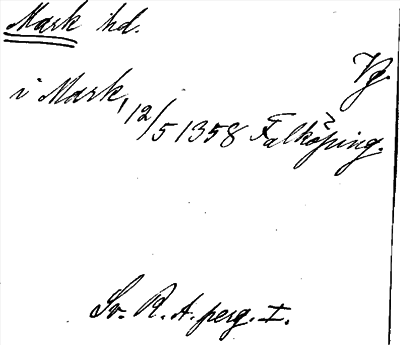 Mark hd.
Vg.
i Mark, 12/5 1358 Falköping.
Sv. R. A. perg. I.